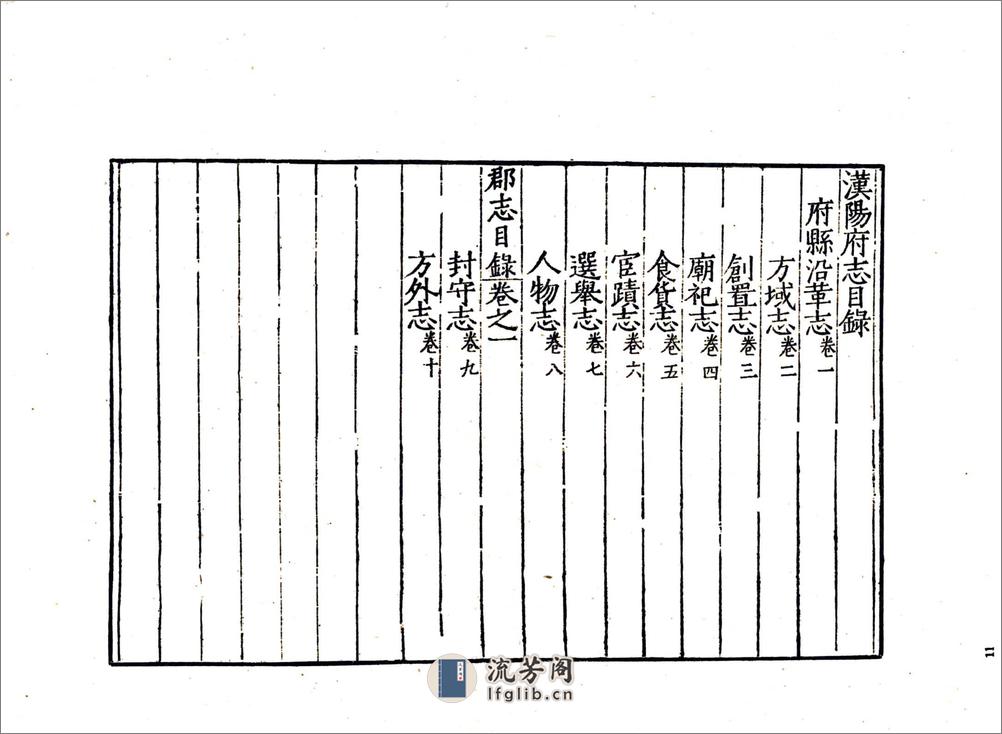 漢陽府志目錄
府縣沿革志卷一
方域志卷二
創置志卷三
廟祀志卷四
食貨志卷五
宦蹟志卷六
選舉志卷七
人物志卷八
郡志目錄卷之一
封守志卷九
方外志卷十
11
流芳阁
lfglib.cn